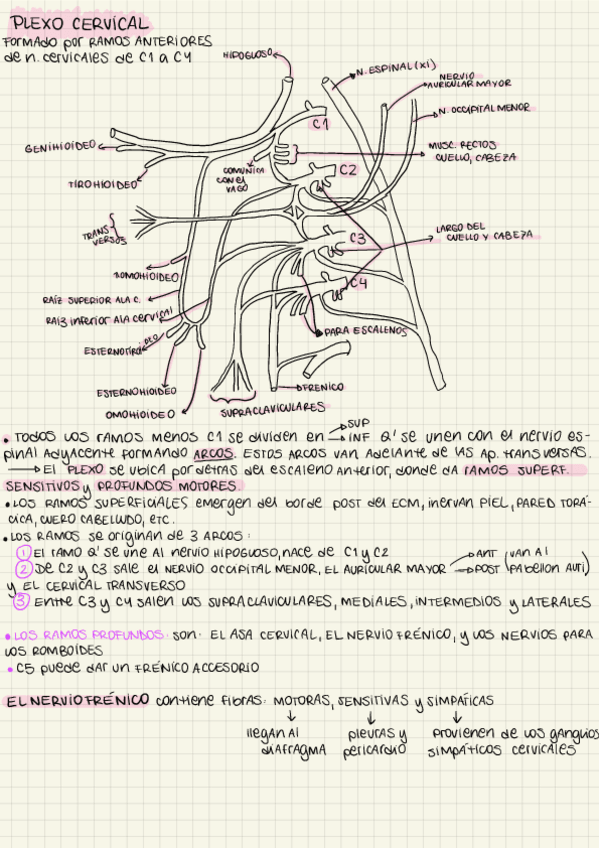 PLEXO CERVICAL
FORMADO por RAMOS ANTERIORES
de n. cervicales de C1 a C4
HIPOGLOSO
N. ESPINAL (XI)
NERVIO
AURICULAR MAYOR
N. OCCIPITAL MENOR
C1
GENIHIOIDEO
MUSC. RECTOS
CUELLO, CABEZA
COMUNICA
CON EL
VAGO
C2
TIROHIOIDEO
TRANS-
VERSOS
C3
LARGO DEL
CUELLO Y CABEZA
OMOHIOIDEO
C4
RAÍZ SUPERIOR ALA C.
RAÍZ INFERIOR ALA CERVICAL
PARA ESCALENOS
ESTERNOTIROIDEO
ESTERNOHIOIDEO
FRENICO
OMOHIOIDEO
SUPRACLAVICULARES
• TODOS LOS RAMOS MENOS C1 SE DIVIDEN EN → SUP → INF Q' SE UNEN CON EL NERVIO ES-
PINAL ADYACENTE FORMANDO ARCOS. ESTOS ARCOS VAN ADELANTE DE LAS AP. TRANSVERSAS.
→ El PLEXO SE UBICA POR DETRAS DEL ESCALENO ANTERIOR, DONDE DA RAMOS SUPERF.
SENSITIVOS y PROFUNDOS MOTORES.
• LOS RAMOS SUPERFICIALES emergen del borde POST del ECM, INERVAN PIEL, PARED TORÁ-
CICA, CUERO CABELLUDO, ETC.
• LOS RAMOS SE ORIGINAN DE 3 ARCOS:
1 El RAMO Q' SE UNE Al NERVIO HIPOGLOSO, NACE DE C1 y C2
2 DE C2 Y C3 SALE EL NERVIO OCCIPITAL MENOR, EL AURICULAR MAYOR → ANT → POST (VAN Al PABELLON AURI)
y EL CERVICAL TRANSVERSO
3 ENTRE C3 y C4 SALEN LOS SUPRACLAVICULARES, MEDIALES, INTERMEDIOS y LATERALES
• LOS RAMOS PROFUNDOS SON: EL ASA CERVICAL, EL NERVIO FRÉNICO, Y LOS NERVIOS PARA
LOS ROMBOÍDES
• C5 puede dar UN FRÉNICO ACCESORIO
EL NERVIO FRÉNICO contiene fibras: MOTORAS, SENSITIVAS y SIMPATICAS
llegan Al
diAFRAGMA
pleuras y
pericardio
Provienen de LOS GANGLIOS
SIMPÁTICOS CERVICALES